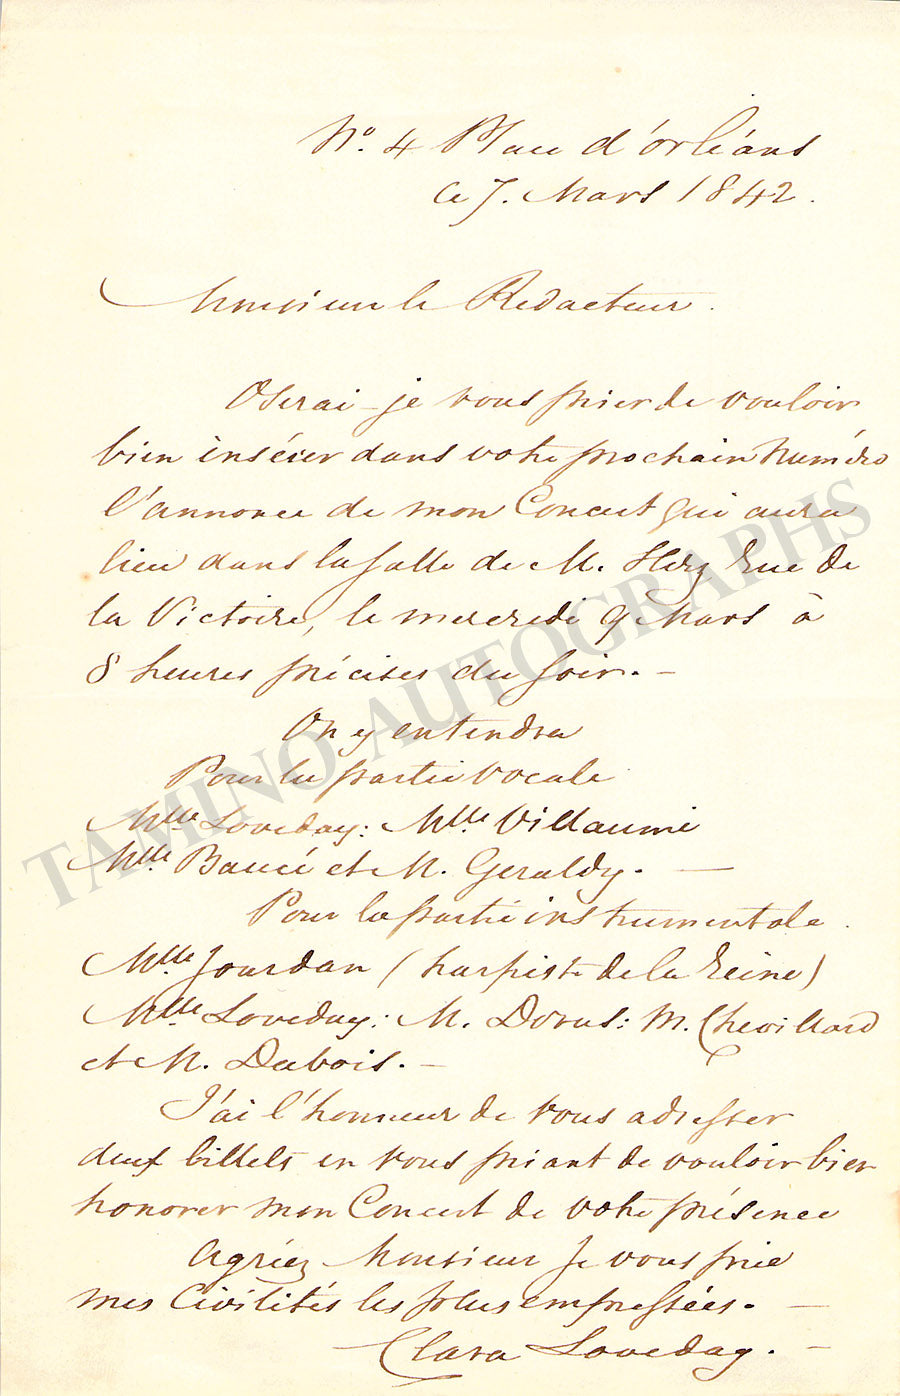 No. 4 Place d'Orléans
ce 7. Mars 1842.
Monsieur le Redacteur.
Oserai-je vous prier de vouloir
bien insérer dans votre prochain Numéro
l'annonce de mon Concert qui aura
lieu dans la Salle de M. Herz Rue de
la Victoire, le mercredi 9 Mars à
8 heures précises du soir. —
On y entendra
Pour la partie vocale
Mlle Loveday: Mlle Villaumi
Mlle Baucé et M. Geraldy. —
Pour la partie instrumentale.
Mlle Jourdan (harpiste de la Reine)
Mlle Loveday: M. Dorus: M. Chevillard
et M. Dubois. —
J'ai l'honneur de vous adresser
deux billets en vous priant de vouloir bien
honorer mon Concert de votre présence
Agréez Monsieur je vous prie
mes Civilités les plus empressées. —
Clara Loveday. —
TAMINO AUTOGRAPHS